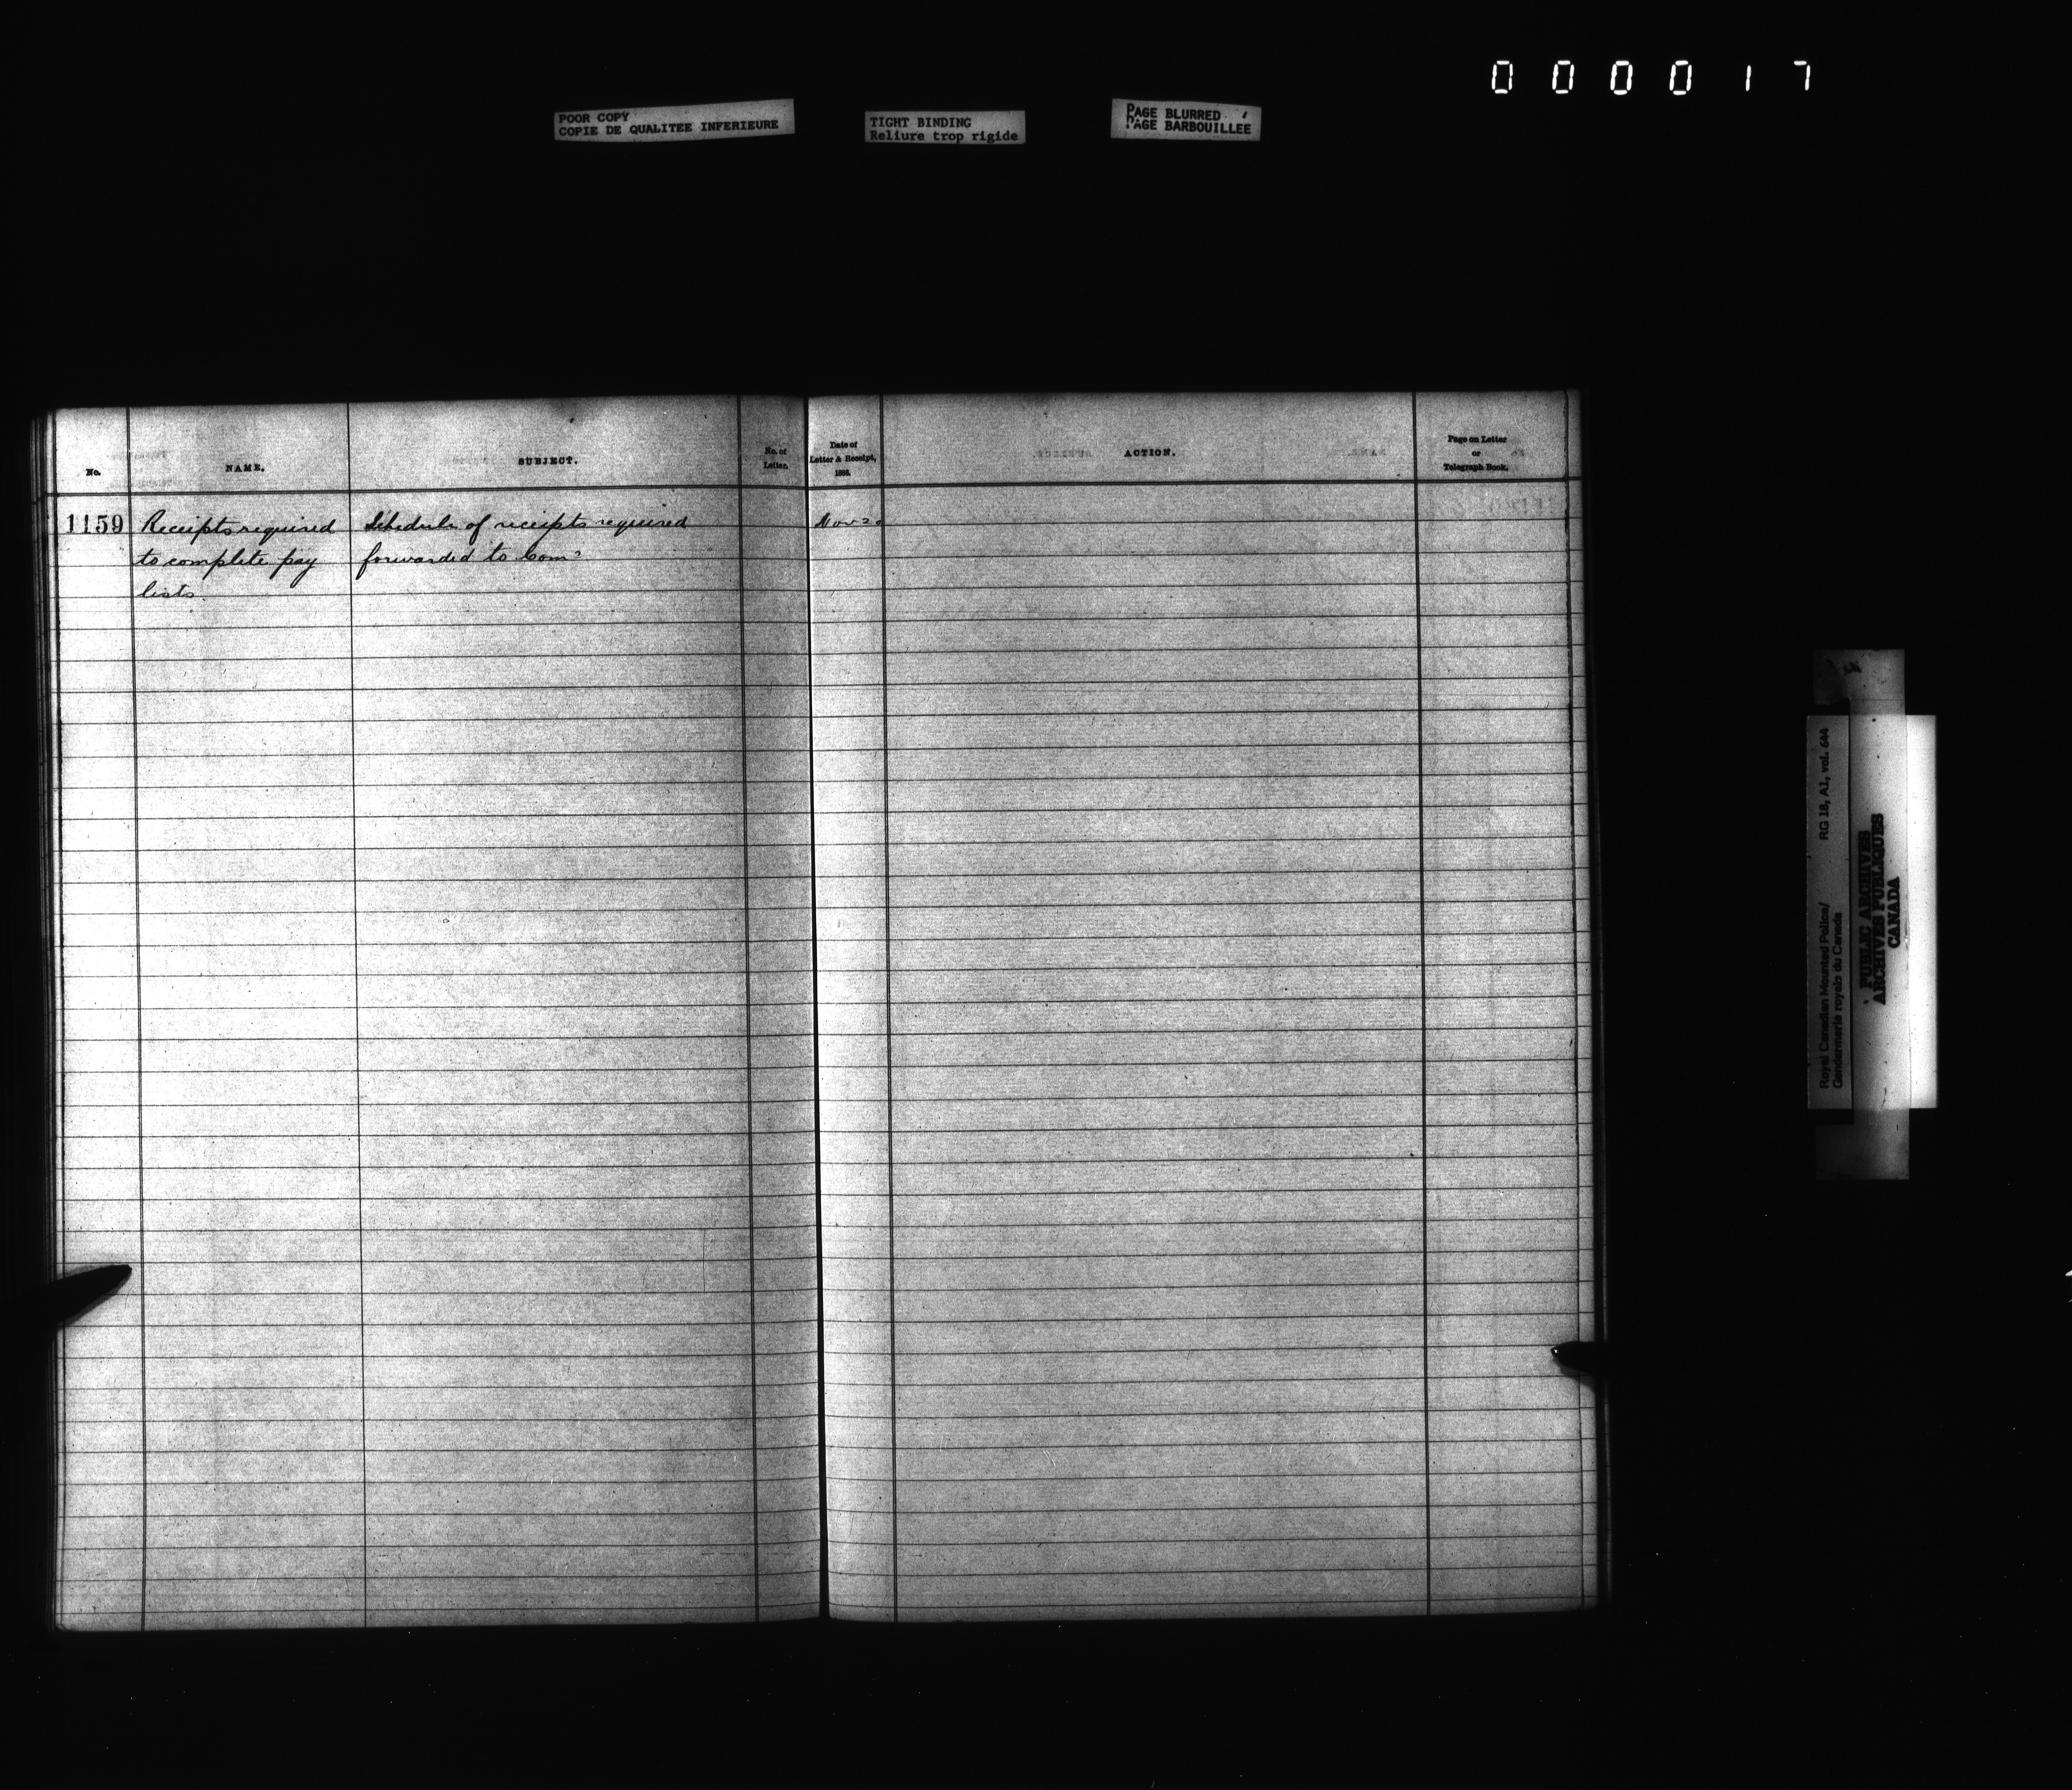 000017
POOR COPY
COPIE DE QUALITEE INFERIEURE
TIGHT BINDING
Reliure trop rigide
PAGE BLURRED
PAGE BARBOUILLEE
No.
NAME.
SUBJECT.
No. of
Letter.
Date of
Letter & Receipt,
188
ACTION.
Page on Letter
or
Telegraph Book.
1159
Receipts required
to complete pay
lists.
Schedule of receipts required
forwarded to Comr
Nov 20
Royal Canadian Mounted Police/ RG 18, A1, vol. 644
Gendarmerie royale du Canada
PUBLIC ARCHIVES
ARCHIVES PUBLIQUES
CANADA